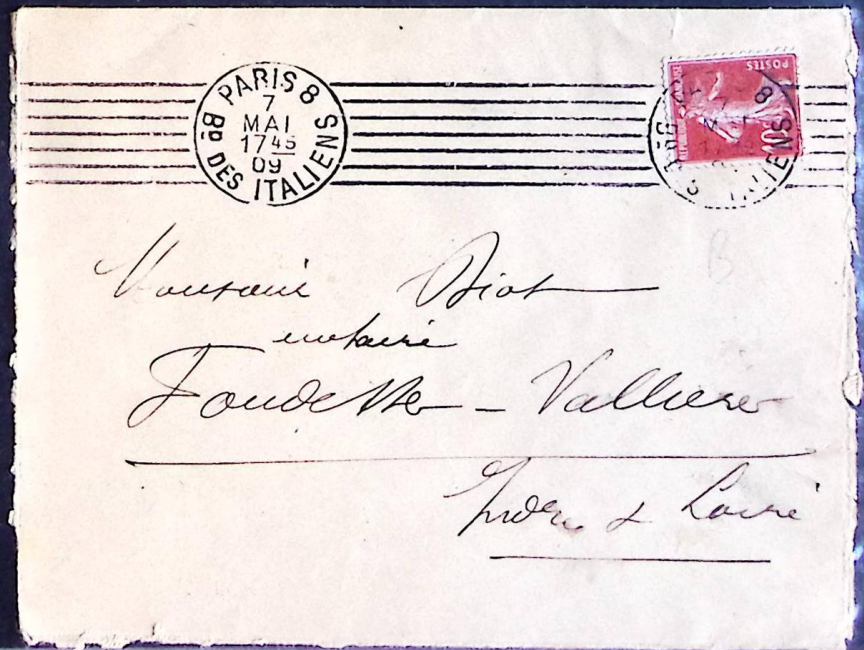 PARIS 8
7
MAI
17 45
09
Bᴅ DES ITALIENS
POSTES
10
8
ALIENS
B
Monsieur Biot
notaire
Fondettes - Vallières
Indre & Loire